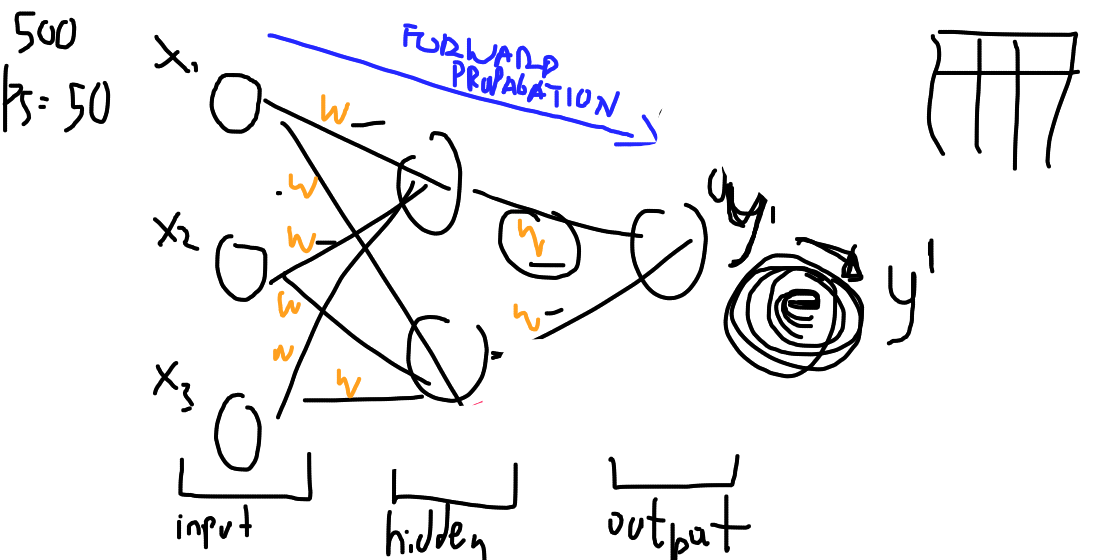 500
BS = 50
FORWARD
PROPAGATION
x1
w
w
x2
w
w
w
x3
w
w
w
y1
e
y'
input
hidden
output